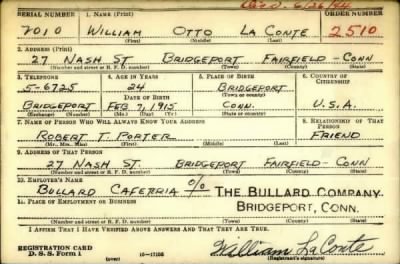 Dec'd. 6/26/44
SERIAL NUMBER 1. NAME (Print) ORDER NUMBER
2010 WILLIAM OTTO LA CONTE 2510
(First) (Middle) (Last)
2. ADDRESS (Print)
27 NASH ST BRIDGEPORT FAIRFIELD - CONN
(Number and street or R. F. D. number) (Town) (County) (State)
3. TELEPHONE 4. AGE IN YEARS 5. PLACE OF BIRTH 6. COUNTRY OF CITIZENSHIP
5-6725 24 BRIDGEPORT
DATE OF BIRTH (Town or county)
BRIDGEPORT FEB 7, 1915 CONN. U.S.A.
(Exchange) (Number) (Mo.) (Day) (Yr.) (State or country)
7. NAME OF PERSON WHO WILL ALWAYS KNOW YOUR ADDRESS 8. RELATIONSHIP OF THAT PERSON
ROBERT T. PORTER FRIEND
(Mr., Mrs., Miss) (First) (Middle) (Last)
9. ADDRESS OF THAT PERSON
27 NASH ST. BRIDGEPORT FAIRFIELD - CONN
(Number and street or R. F. D. number) (Town) (County) (State)
10. EMPLOYER'S NAME
BULLARD CAFETRIA % THE BULLARD COMPANY
11. PLACE OF EMPLOYMENT OR BUSINESS BRIDGEPORT, CONN.
(Number and street or R. F. D. number) (Town) (County) (State)
I AFFIRM THAT I HAVE VERIFIED ABOVE ANSWERS AND THAT THEY ARE TRUE.
REGISTRATION CARD
D. S. S. Form 1 (over) 16-17105 William LaConte
(Registrant's signature)